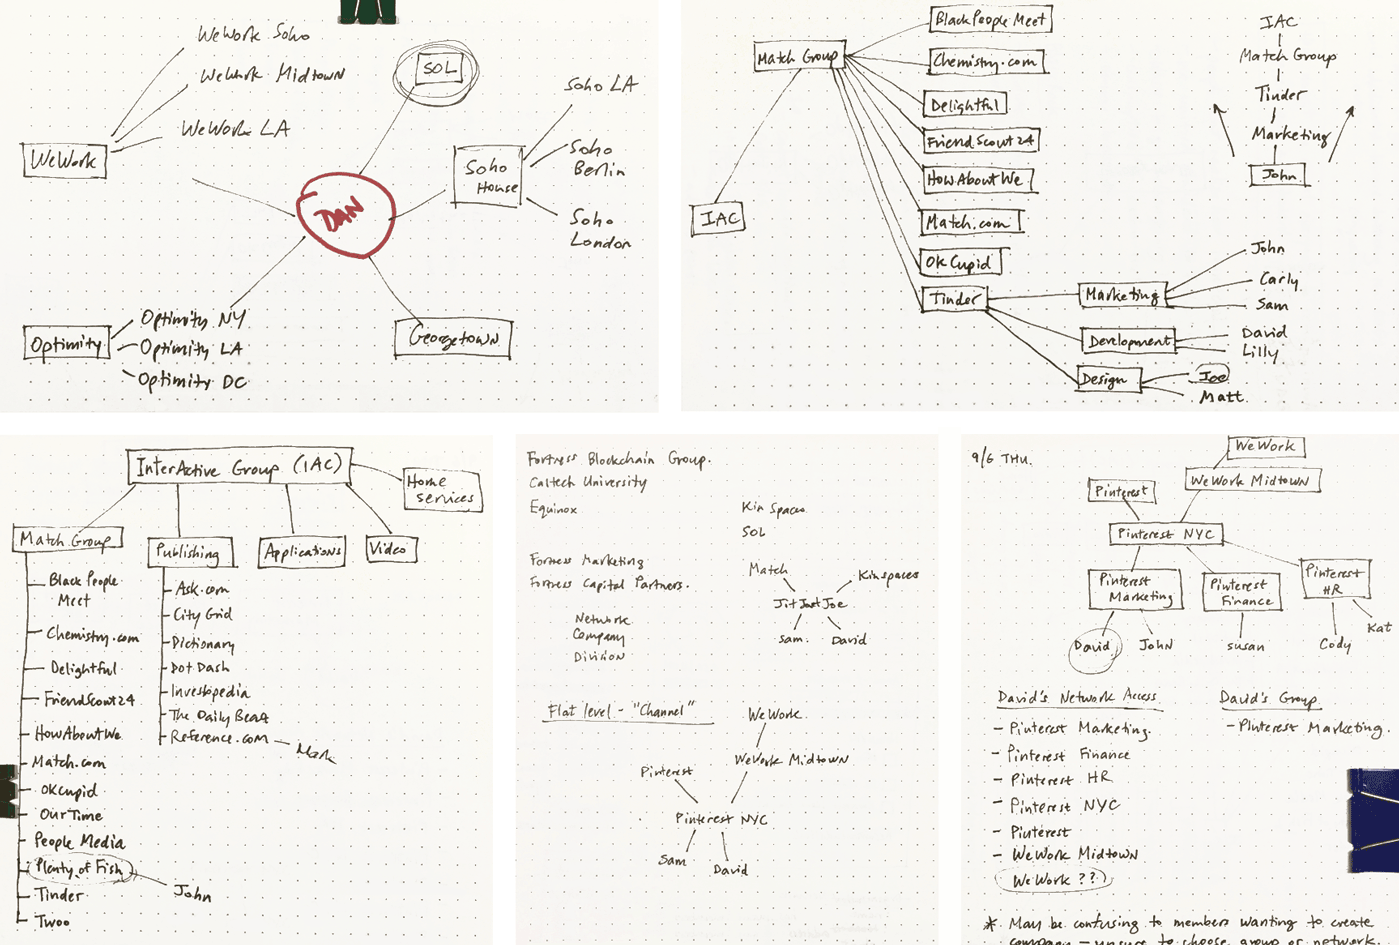 WeWork Soho
WeWork Midtown
WeWork LA
WeWork
SOL
Soho LA
Soho
House
Soho
Berlin
Soho
London
DAN
Optimity
Optimity NY
Optimity LA
Optimity DC
Georgetown
Match Group
IAC
BlackPeopleMeet
Chemistry.com
Delightful
FriendScout24
HowAboutWe
Match.com
OkCupid
Tinder
Marketing
John
Carly
Sam
Development
David
Lilly
Design
Joe
Matt
IAC
Match Group
Tinder
Marketing
John
InterActive Group (IAC)
Home
services
Match Group
Publishing
Applications
Video
Black People
Meet
Chemistry.com
Delightful
FriendScout24
HowAboutWe
Match.com
OKcupid
OurTime
People Media
Plenty of Fish
John
Tinder
Twoo
Ask.com
City Grid
Dictionary
Dot Dash
Investopedia
The Daily Beast
Reference.com
Mark
Fortress Blockchain Group.
Caltech University
Equinox
Kin Spaces
SOL
Fortress Marketing
Fortress Capital Partners.
Network
Company
Division
Match
Kinspaces
JitJatJoe
Sam
David
Flat level - "Channel"
WeWork
WeWork Midtown
Pinterest
Pinterest NYC
Sam
David
9/6 THU.
WeWork
WeWork Midtown
Pinterest
Pinterest NYC
Pinterest
Marketing
Pinterest
Finance
Pinterest
HR
David
JOHN
susan
Cody
Kat
David's Network Access
- Pinterest Marketing.
- Pinterest Finance
- Pinterest HR
- Pinterest NYC
- Pinterest
- WeWork Midtown
WeWork ??
David's Group
- Pinterest Marketing.
* May be confusing to members wanting to create
company - unsure to choose group or network.